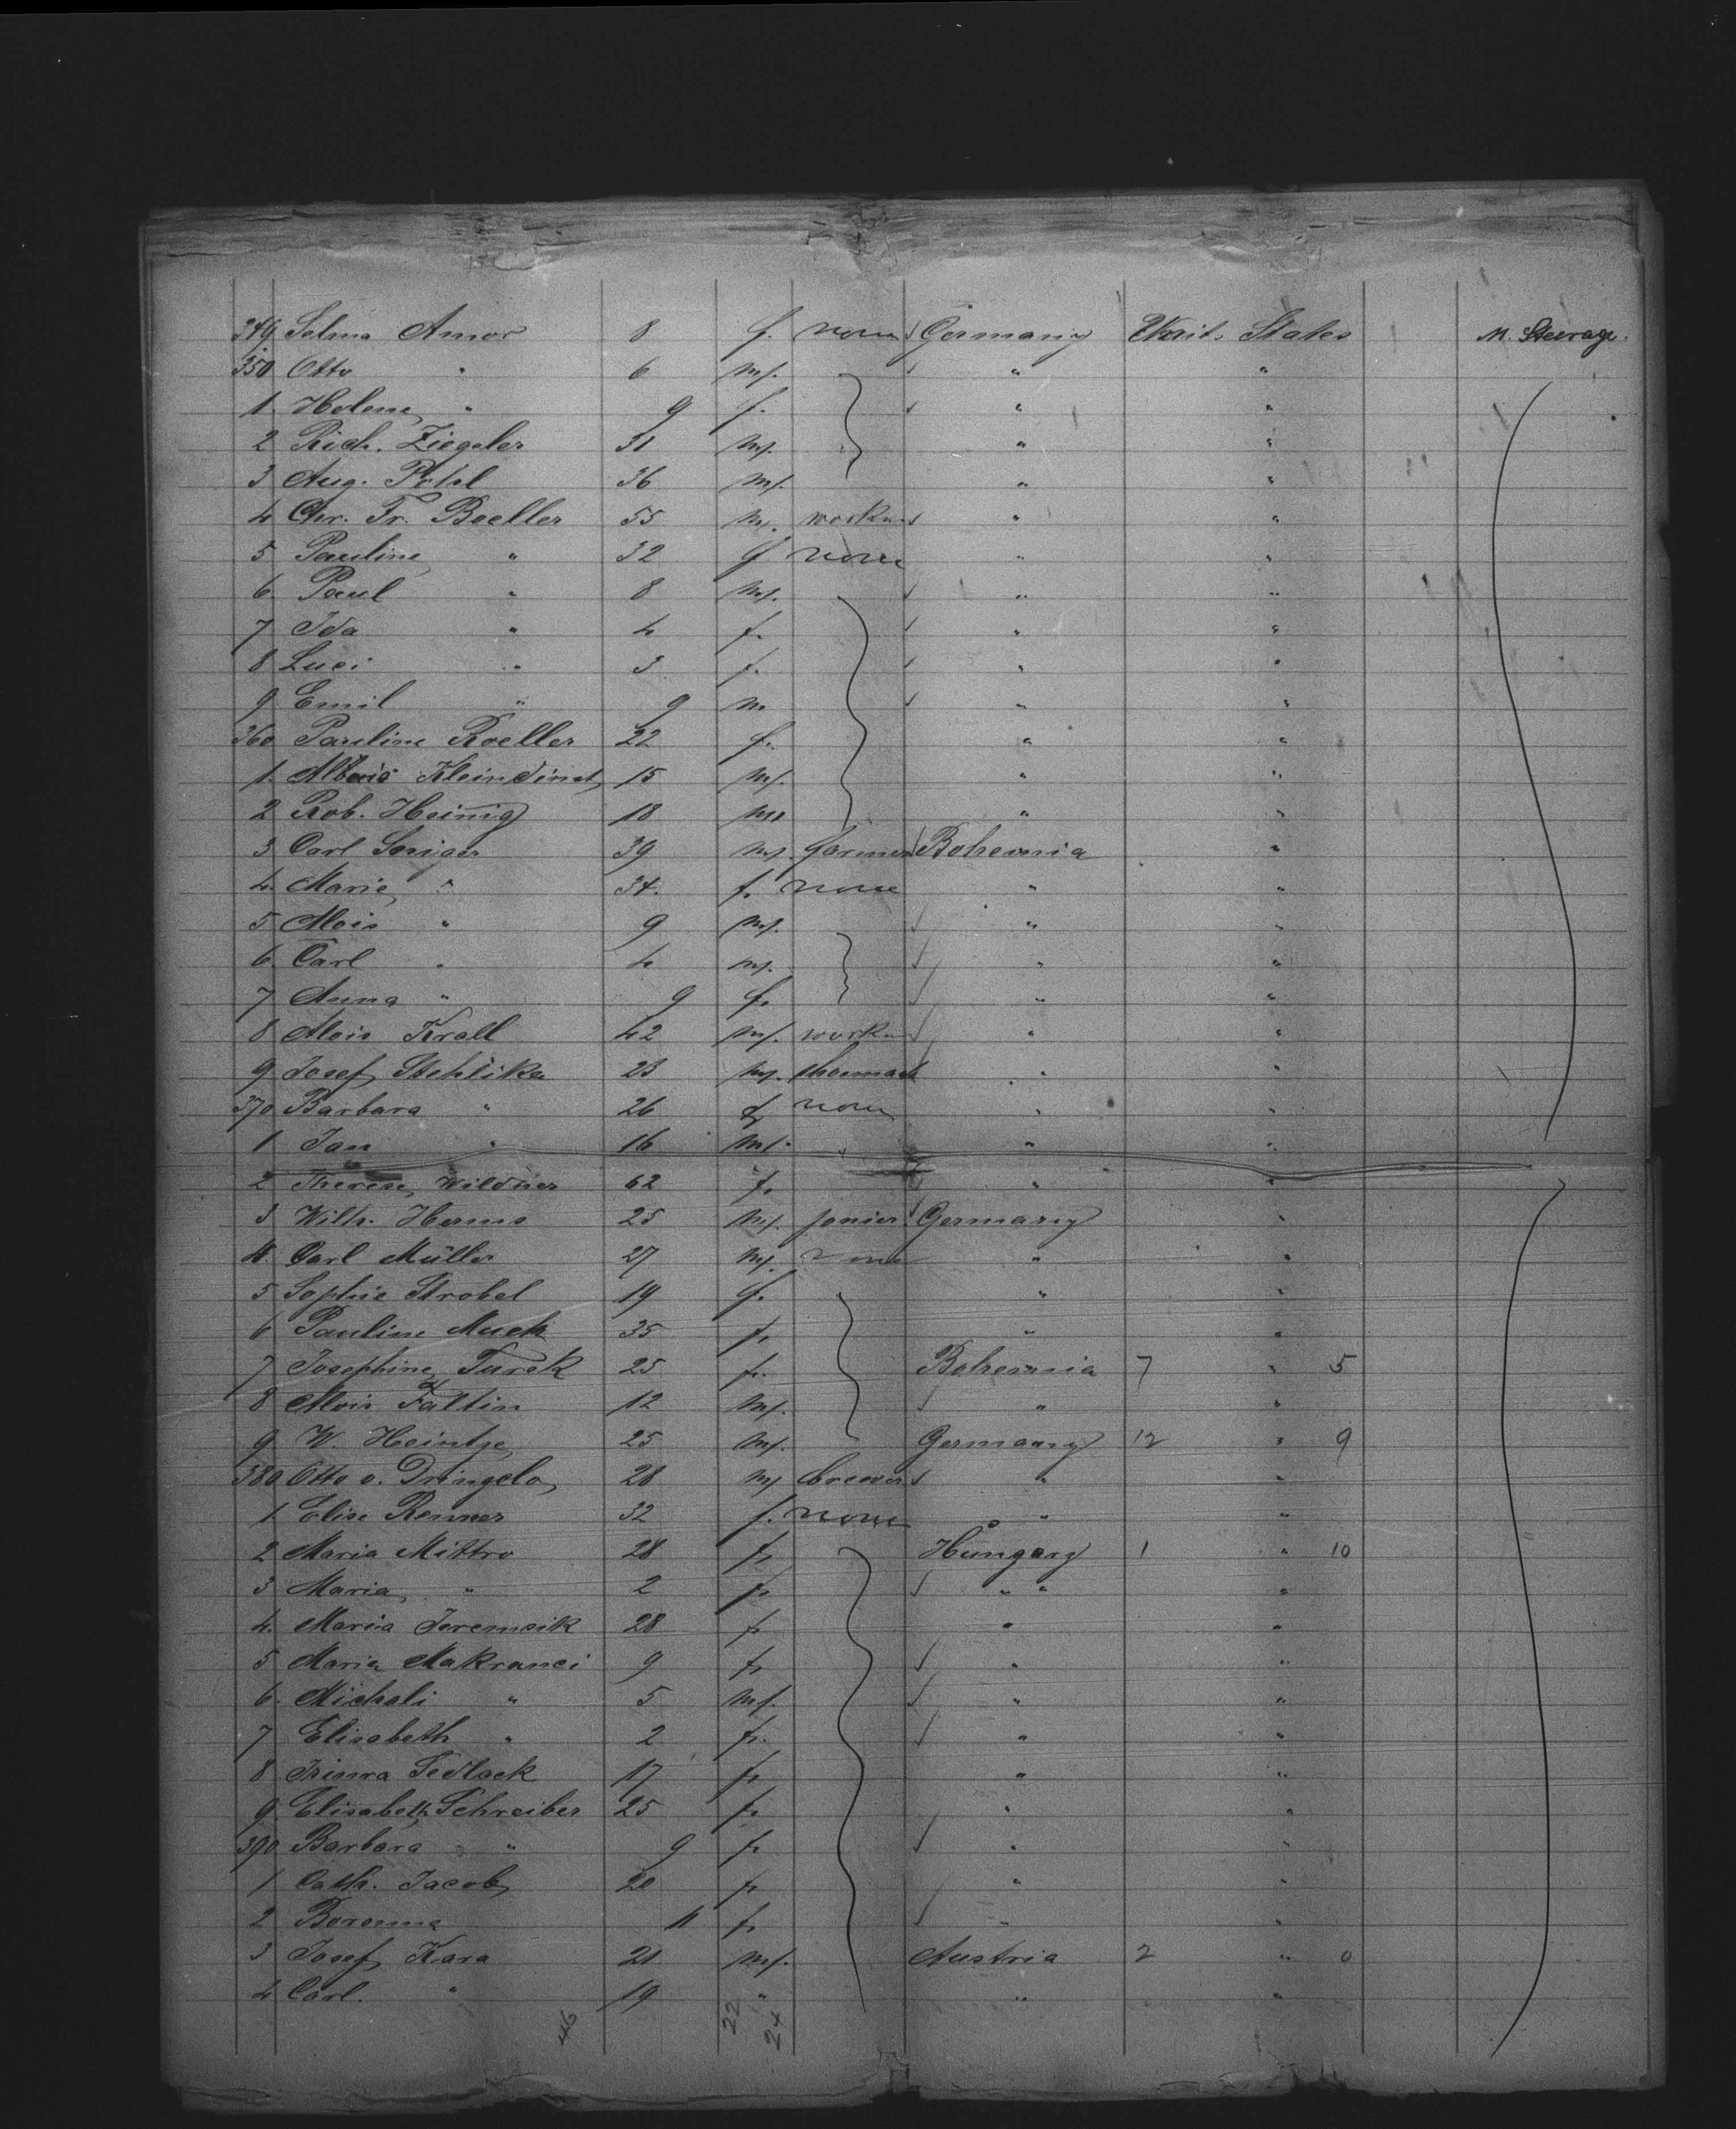 349 Selma Amor 8 f. none Germany Unit. States M. Steerage.
350 Otto " 6 m. " "
1. Helene " 9 f. " "
2 Rich. Ziegeler 31 m. " "
3 Aug. Pohl 36 m. " "
4 Chr. Fr. Boeller 55 m. workm. " "
5 Pauline " 32 f none " "
6 Paul " 8 m. " "
7 Ida " 4 f. " "
8 Luci " 3 f. " "
9 Emil " 9 m " "
360 Pauline Roeller 22 f. " "
1. Kleindinst 15 m. " "
2 Rob. Heinig 18 m. " "
3 Carl 39 m. farmer Bohemia "
4. Marie " 34. f. none " "
5 Alois " 9 m. " "
6. Carl " 4 m. " "
7 Anna " 9 f. " "
8 Alois Krall 42 m. workm " "
9 Josef Stehlika 23 m. shoemak " "
370 Barbara " 26 f none " "
1 Jan " 16 m. " "
2 Therese Wildner 62 f. " "
3 Wilh. Herms 25 m. Germany "
4. Carl Müller 27 m. none " "
5 Sophie Strobel 19 f. " "
6 Pauline Muck 35 f. " "
7 Josephine Turek 25 f. Bohemia 7 " 5
8 Alois Faltin 12 m. " "
9 W. Heintze 25 m. Germany 12 " 9
380 Otto v. Dringelo 28 m brewer " "
1. Elise Renner 32 f. none " "
2 Maria Mittro 28 f. Hungary 1 " 10
3 Maria " 2 f. " " "
4. Maria Jeremsik 28 f. " "
5 Maria Makranci 9 f. " "
6. Michali " 5 m. " "
7 Elisabeth " 2 f. " "
8 Sedlack 17 f. " "
9 Elisabeth Schreiber 25 f. " "
390 Barbara " 9 f. " "
1 Cath. Jacob 20 f. " "
2 11 f. " "
3 Josef Kara 21 m. Austria 2 " 0
4 Carl. " 19 " " "
46 22 24